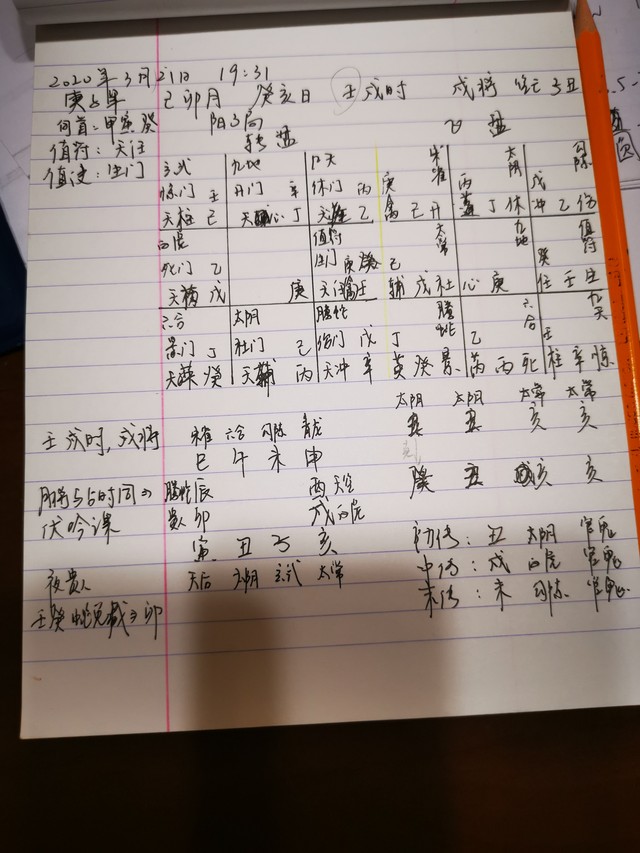 2020年3月21日 19:31
庚子年 己卯月 癸亥日 壬戌时 戌将 空亡子丑
旬首：甲寅癸 阳3局
值符：天任 转盘 飞盘
值使：生门
玄武 九地 九天 朱雀 太阴 勾陈
惊门 壬 开门 辛 休门 丙 庚 丙 戊
天柱 己 天心 丁 天 乙 禽 己 开 丁 休 冲 乙 伤
白虎 值符 太常 九地 值符
死门 乙 生门 庚 癸 己 癸
天 戊 庚 天任 壬 辅 戊 杜 心 庚 任 壬 生
六合 太阴 腾蛇 腾蛇 六合 九天
景门 丁 杜门 己 伤门 戊 丁 乙 壬
天英 癸 天辅 丙 天冲 辛 英 癸 景 芮 丙 死 柱 辛 惊
太阴 太阴 太常 太常
壬戌时，戌将 朱雀 六合 勾陈 青龙 丑 丑 亥 亥
巳 午 未 申
月将与占时同 腾蛇 辰 酉 天空 癸 丑 亥 亥
伏吟课 贵 卯 戌 白虎
寅 丑 子 亥 初传：丑 太阴 官鬼
夜贵人 天后 太阴 玄武 太常 中传：戌 白虎 官鬼
末传：未 勾陈 官鬼
壬癸蛇兔藏 卯